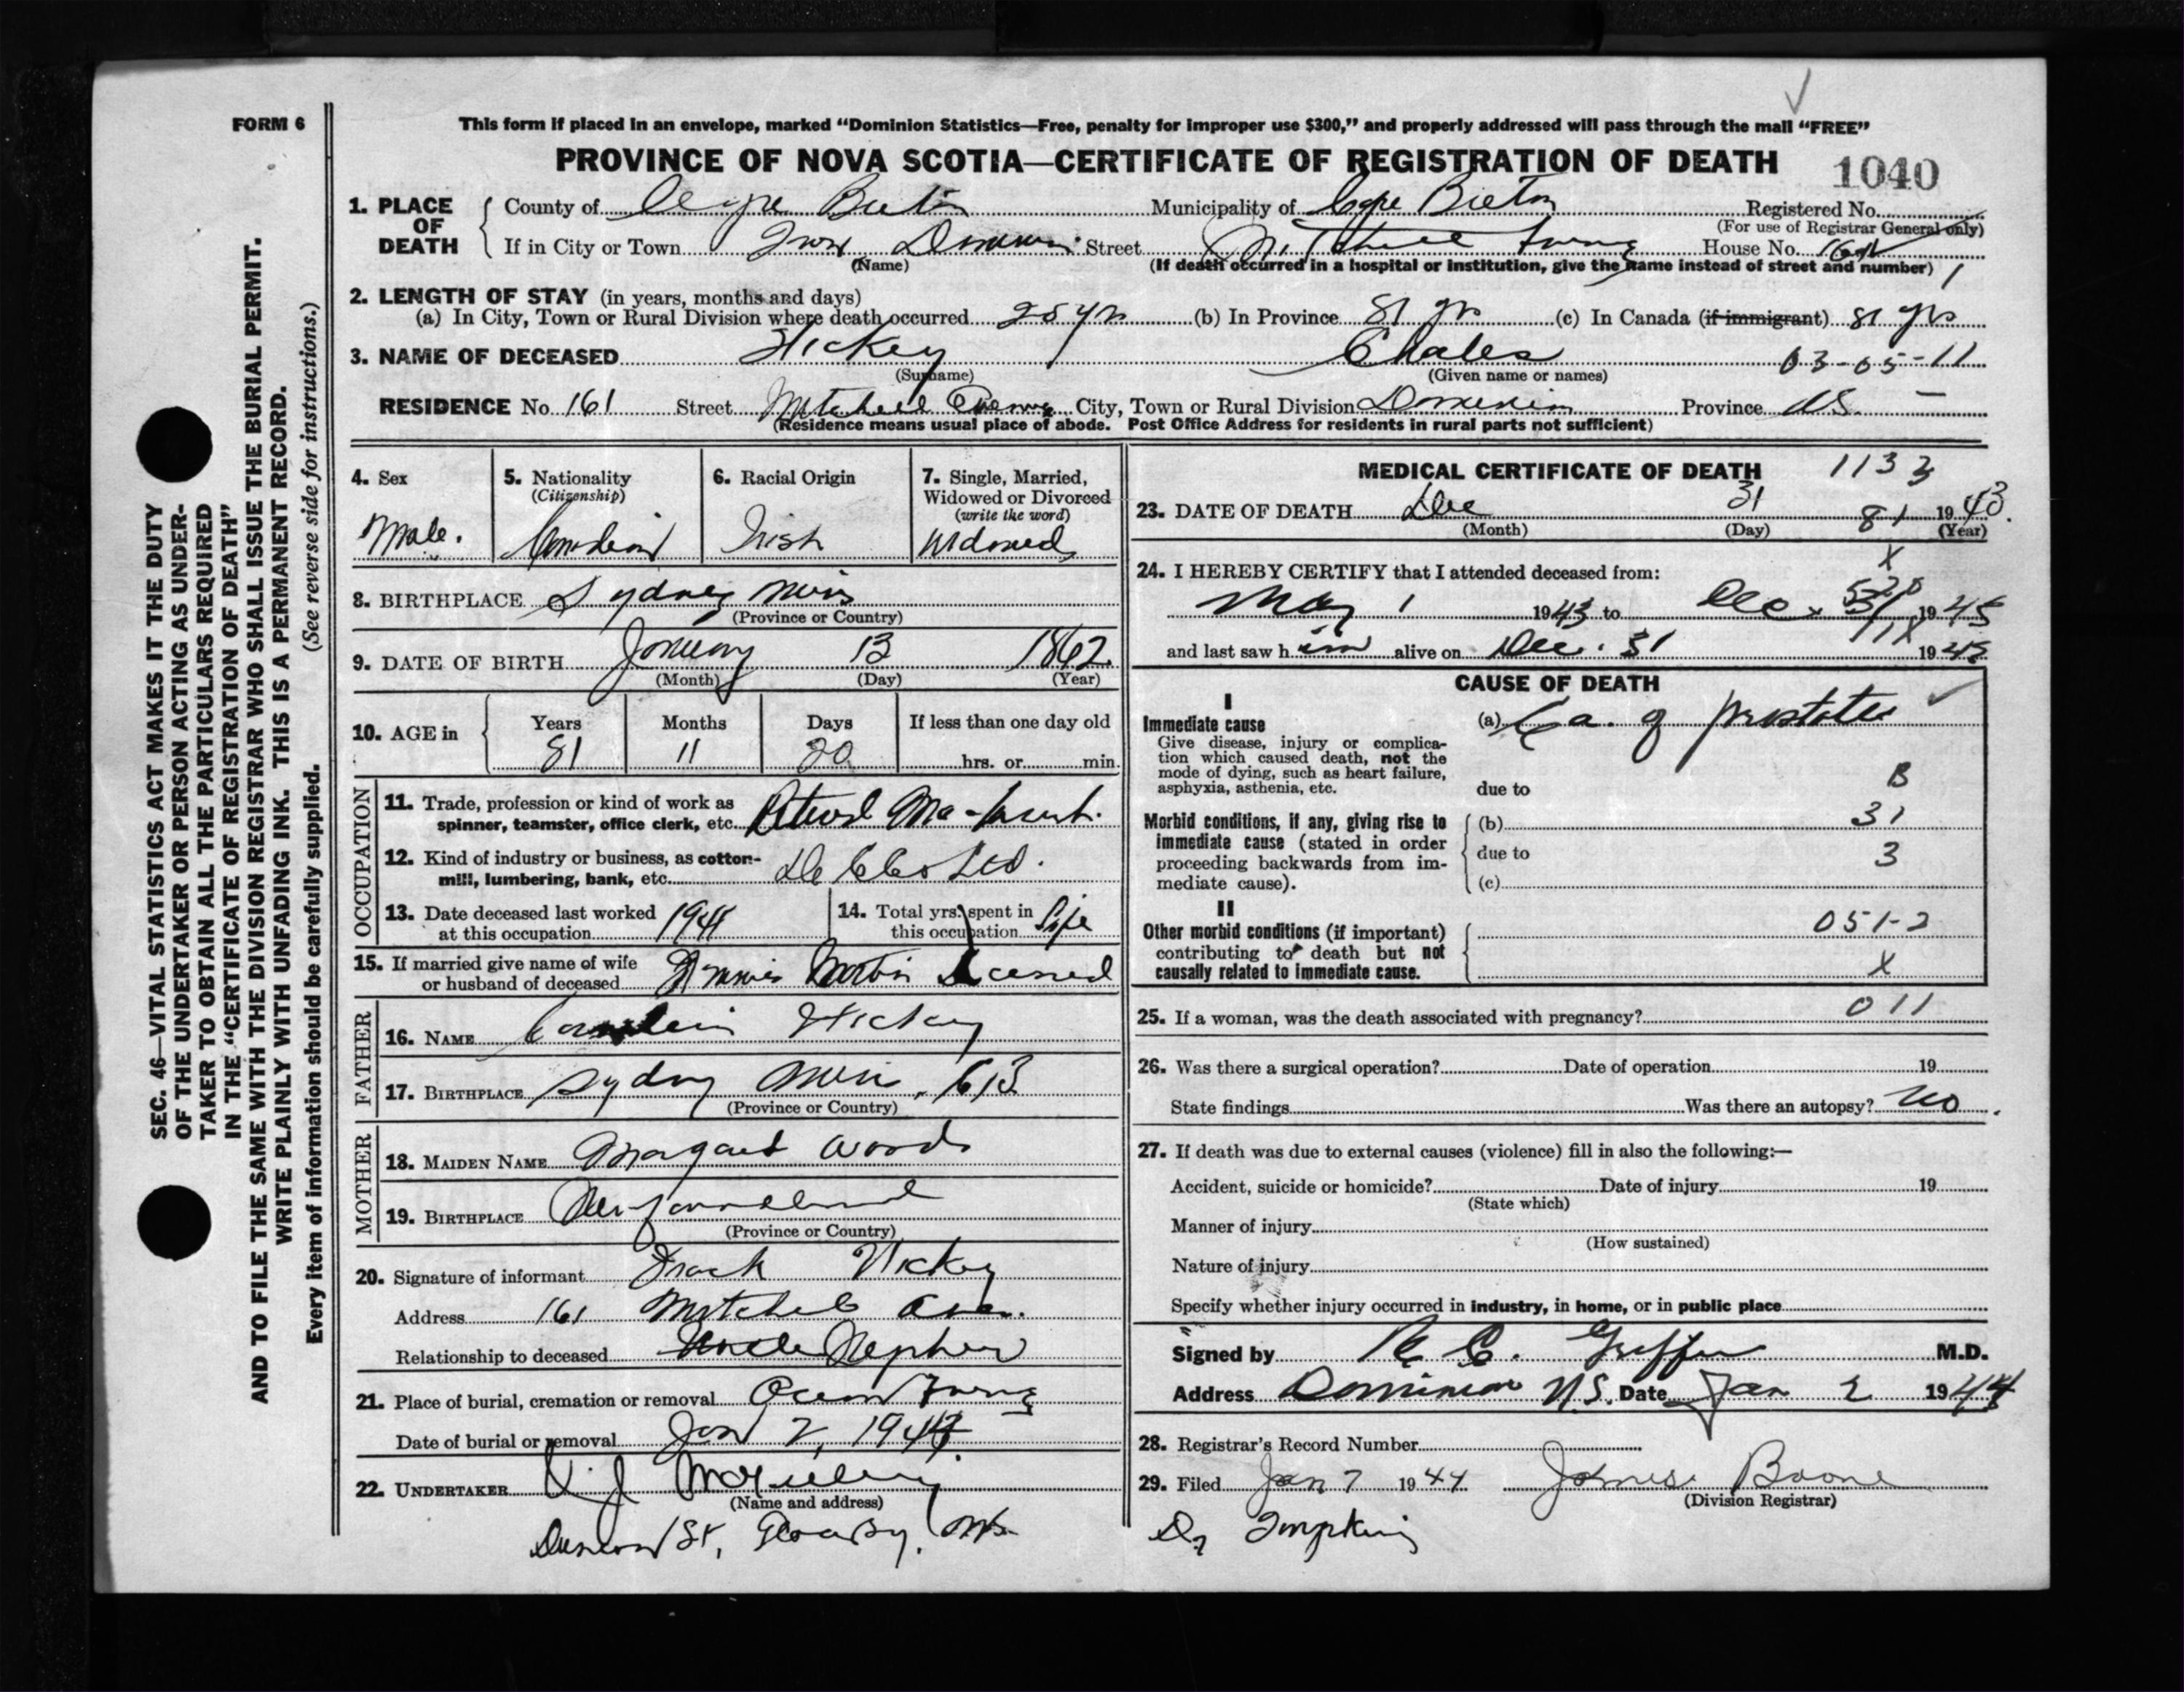 FORM 6
This form if placed in an envelope, marked “Dominion Statistics—Free, penalty for improper use $300,” and properly addressed will pass through the mail “FREE”
PROVINCE OF NOVA SCOTIA—CERTIFICATE OF REGISTRATION OF DEATH 1040
1. PLACE OF DEATH County of Cape Breton Municipality of Cape Breton Registered No.
(For use of Registrar General only)
If in City or Town Town Dominion Street House No.
(Name) (If death occurred in a hospital or institution, give the name instead of street and number) 1
2. LENGTH OF STAY (in years, months and days)
(a) In City, Town or Rural Division where death occurred 25 yrs (b) In Province 81 yrs (c) In Canada (if immigrant) 81 yrs
3. NAME OF DECEASED Hickey Chales 03-05-11
(Surname) (Given name or names)
RESIDENCE No. 161 Street Mitchell City, Town or Rural Division Dominion Province NS. —
(Residence means usual place of abode. Post Office Address for residents in rural parts not sufficient)
SEC. 46—VITAL STATISTICS ACT MAKES IT THE DUTY
OF THE UNDERTAKER OR PERSON ACTING AS UNDER-
TAKER TO OBTAIN ALL THE PARTICULARS REQUIRED
IN THE “CERTIFICATE OF REGISTRATION OF DEATH”
AND TO FILE THE SAME WITH THE DIVISION REGISTRAR WHO SHALL ISSUE THE BURIAL PERMIT.
WRITE PLAINLY WITH UNFADING INK. THIS IS A PERMANENT RECORD.
Every item of information should be carefully supplied. (See reverse side for instructions.)
4. Sex 5. Nationality (Citizenship) 6. Racial Origin 7. Single, Married, Widowed or Divorced (write the word)
Male. Canadian Irish Widowed
8. BIRTHPLACE Sydney Mines
(Province or Country)
9. DATE OF BIRTH January 13 1862
(Month) (Day) (Year)
10. AGE in Years Months Days If less than one day old
81 11 20 hrs. or min.
OCCUPATION
11. Trade, profession or kind of work as
spinner, teamster, office clerk, etc. Retired
12. Kind of industry or business, as cotton-
mill, lumbering, bank, etc.
13. Date deceased last worked
at this occupation
14. Total yrs. spent in
this occupation Life
15. If married give name of wife
or husband of deceased Martin Deceased
FATHER
16. NAME Hickey
17. BIRTHPLACE Sydney Mines, 613
(Province or Country)
MOTHER
18. MAIDEN NAME Margaret Woods
19. BIRTHPLACE Newfoundland
(Province or Country)
20. Signature of informant Hickey
Address 161 Mitchell Ave.
Relationship to deceased Uncle Nephew
21. Place of burial, cremation or removal
Date of burial or removal Jan 2, 1944
22. UNDERTAKER
(Name and address)
MEDICAL CERTIFICATE OF DEATH 1133
23. DATE OF DEATH Dec 31 81 1943.
(Month) (Day) (Year)
X
24. I HEREBY CERTIFY that I attended deceased from:
May 1 1943 to Dec. 31 19
and last saw him alive on Dec. 31 19
CAUSE OF DEATH
I
Immediate cause
Give disease, injury or complica-
tion which caused death, not the
mode of dying, such as heart failure,
asphyxia, asthenia, etc.
(a) Ca. of prostate
due to B
Morbid conditions, if any, giving rise to
immediate cause (stated in order
proceeding backwards from im-
mediate cause).
(b) 31
due to 3
(c)
II
Other morbid conditions (if important)
contributing to death but not
causally related to immediate cause.
051-2
X
25. If a woman, was the death associated with pregnancy? 011
26. Was there a surgical operation? Date of operation 19
State findings Was there an autopsy? no.
27. If death was due to external causes (violence) fill in also the following:—
Accident, suicide or homicide? Date of injury 19
(State which)
Manner of injury
(How sustained)
Nature of injury
Specify whether injury occurred in industry, in home, or in public place
Signed by Griffin M.D.
Address Dominion N.S. Date Jan 2 1944
28. Registrar’s Record Number
29. Filed Jan 7 1944 James Boone
(Division Registrar)
Dr Tompkins